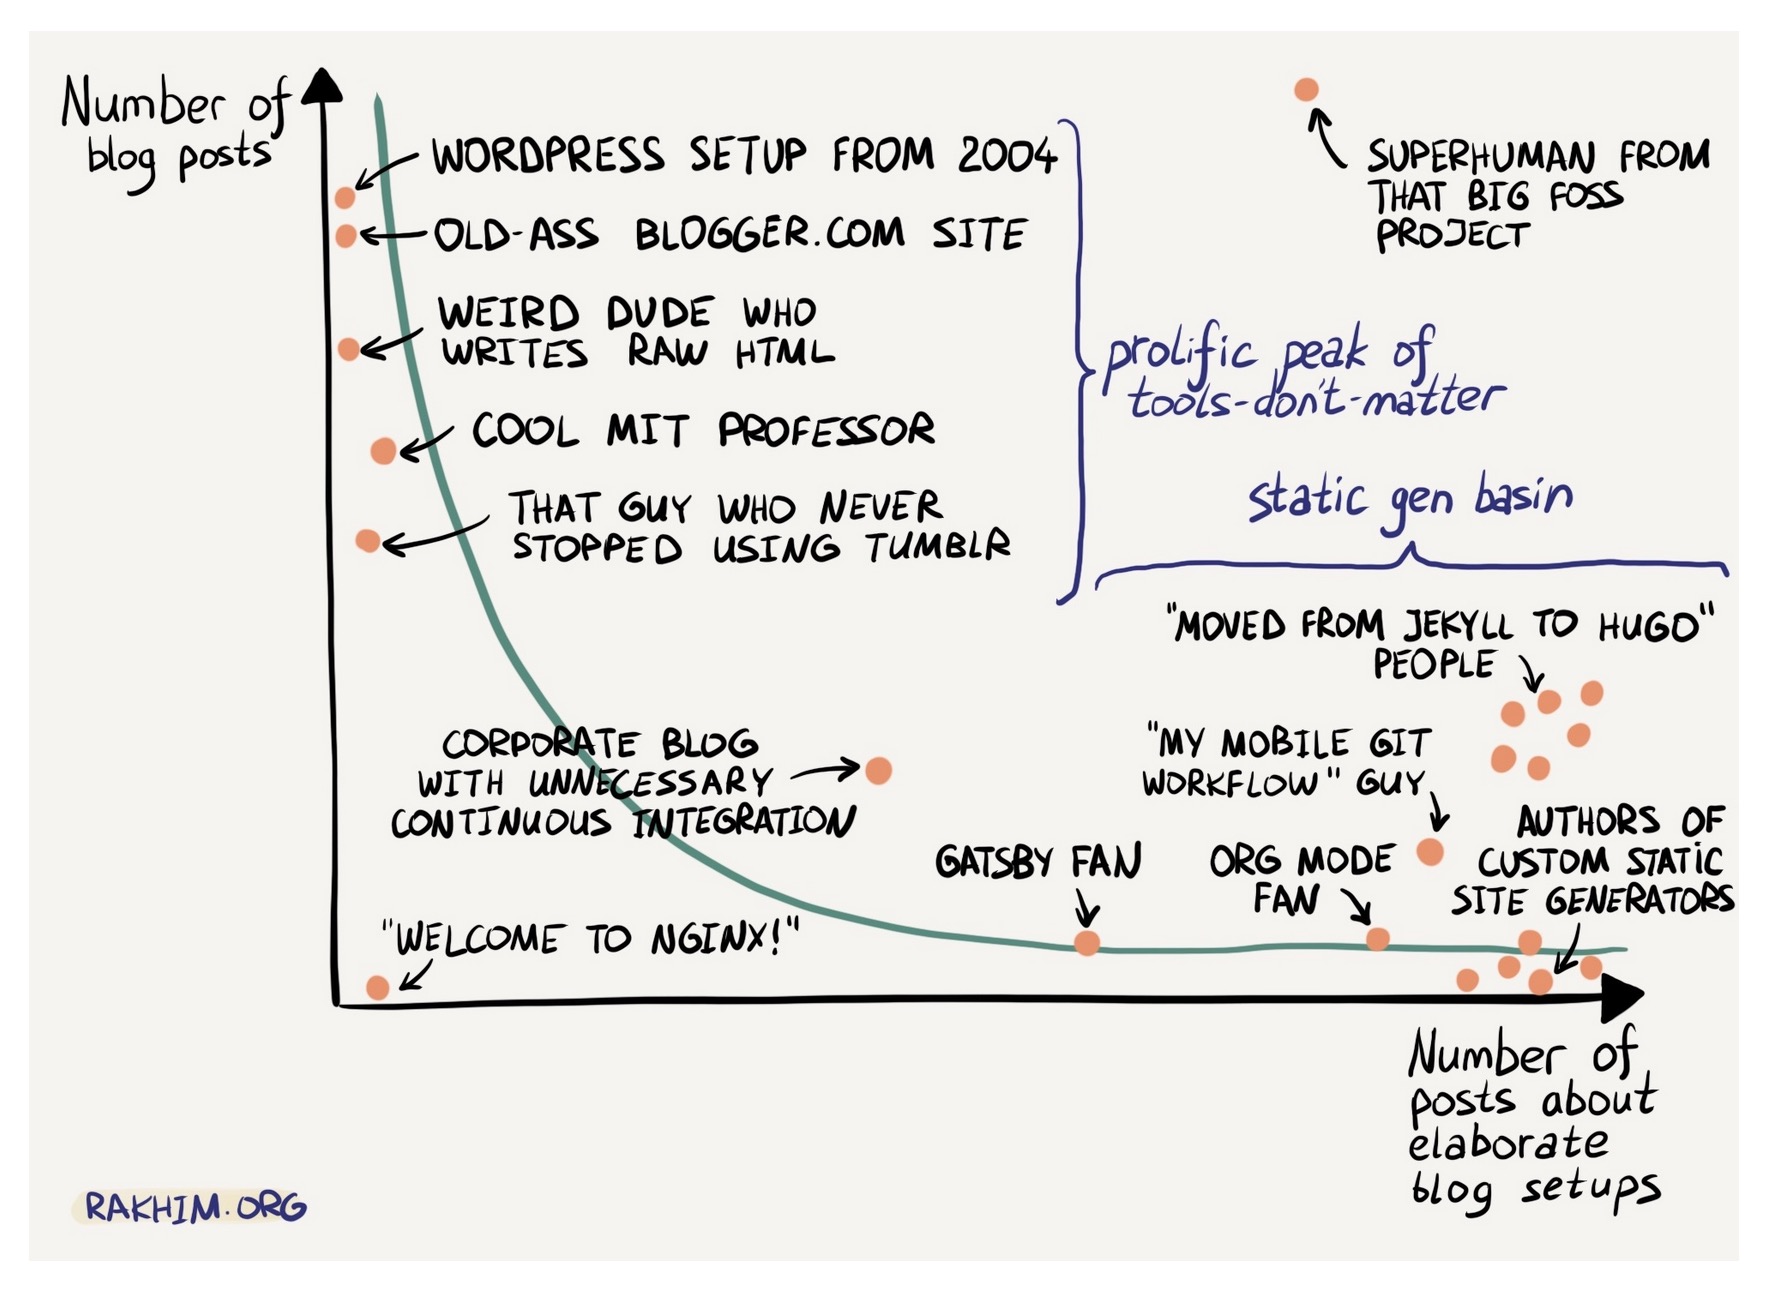 Number of
blog posts
WORDPRESS SETUP FROM 2004
OLD-ASS BLOGGER.COM SITE
WEIRD DUDE WHO
WRITES RAW HTML
COOL MIT PROFESSOR
THAT GUY WHO NEVER
STOPPED USING TUMBLR
prolific peak of
tools-don't-matter
SUPERHUMAN FROM
THAT BIG FOSS
PROJECT
static gen basin
"MOVED FROM JEKYLL TO HUGO"
PEOPLE
"MY MOBILE GIT
WORKFLOW" GUY
CORPORATE BLOG
WITH UNNECESSARY
CONTINUOUS INTEGRATION
GATSBY FAN
ORG MODE
FAN
AUTHORS OF
CUSTOM STATIC
SITE GENERATORS
"WELCOME TO NGINX!"
Number of
posts about
elaborate
blog setups
RAKHIM.ORG